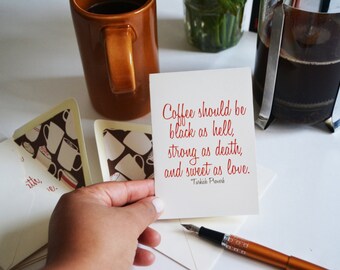 Coffee should be
black as hell,
strong as death,
and sweet as love.
"Turkish Proverb